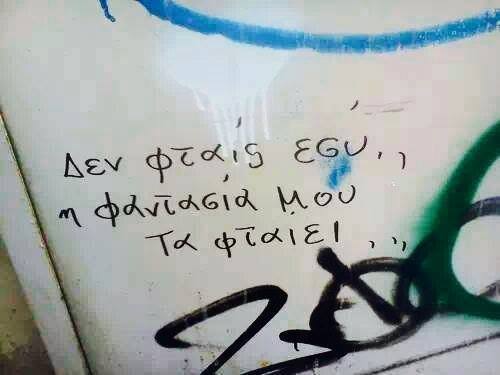 Δεν φταίς εσύ,,
η φαντασία μου
τα φταιει,,,